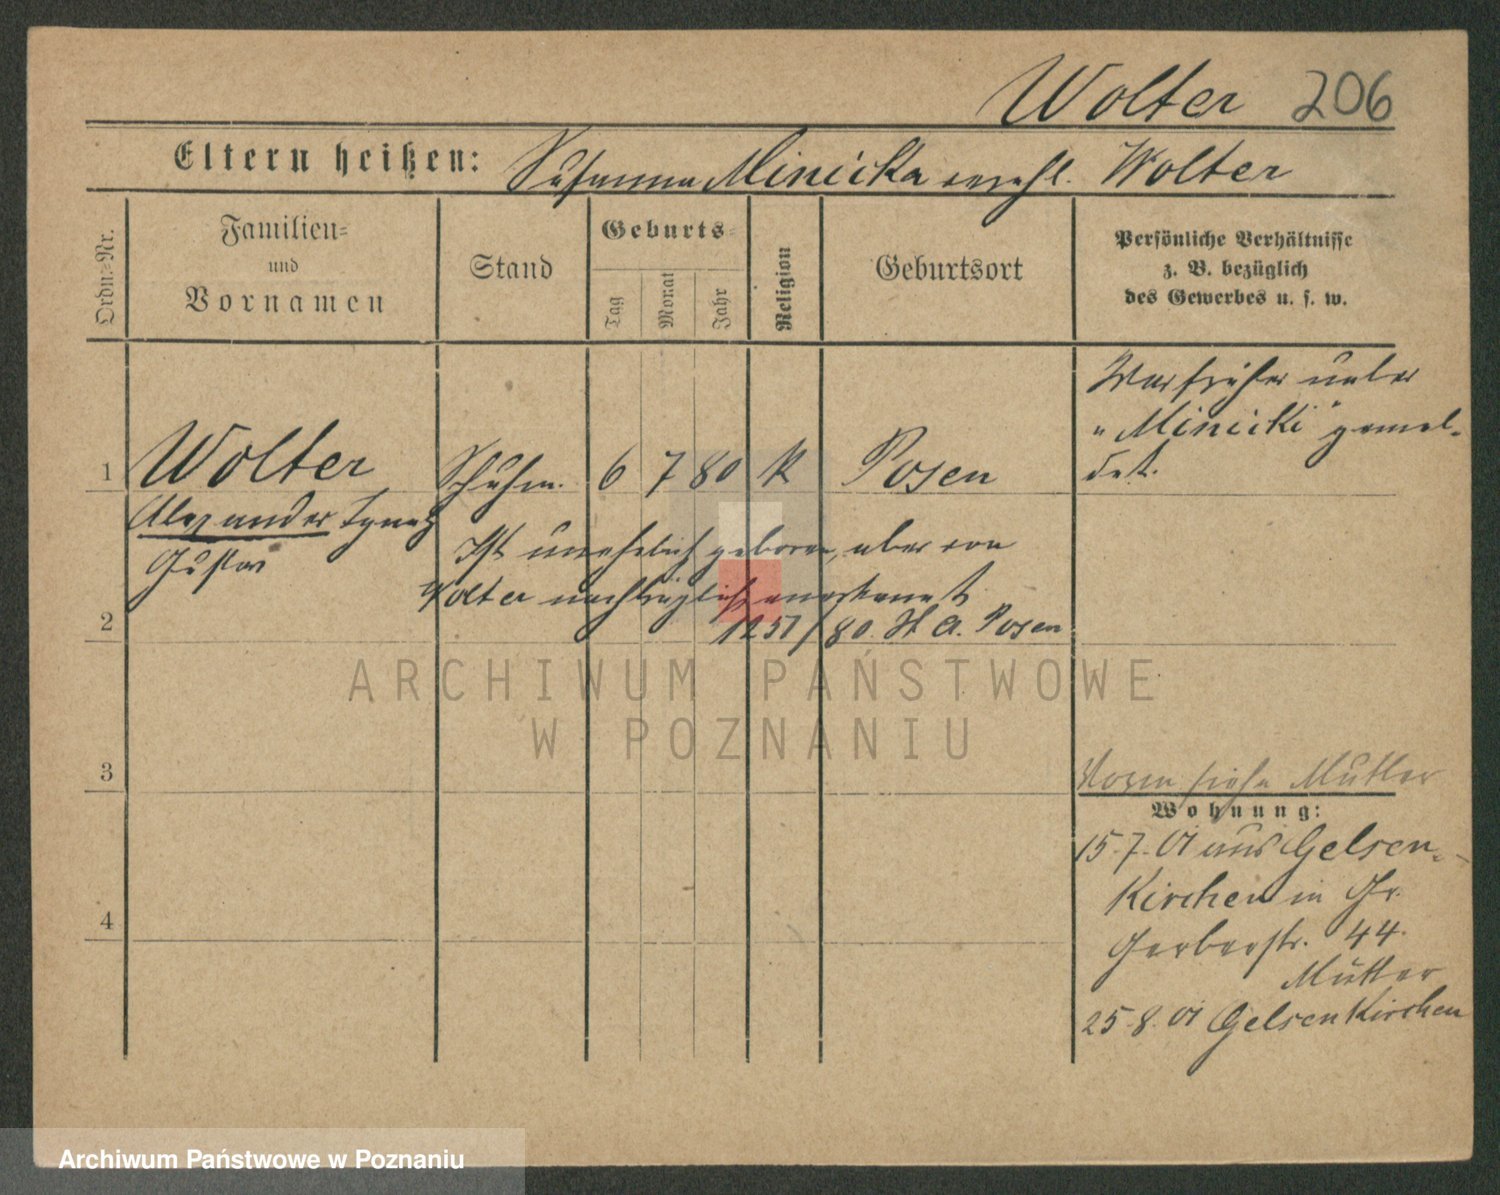 Wolter 206
Eltern heißen: Susanna Minicka verehl. Wolter
Ordn.-Nr.
Familien-
und
Vornamen
Stand
Geburts-
Tag
Monat
Jahr
Religion
Geburtsort
Persönliche Verhältnisse
z. B. bezüglich
des Gewerbes u. s. w.
War früher unter
„Minicki" gemel-
det.
1 Wolter Schuhm. 6 7 80 k Posen
Alexander Ignatz
Gustav
Ist unehelich geboren, aber von
Wolter nachträglich anerkannt
1251/80. St. A. Posen
2
3
4
ARCHIWUM PAŃSTWOWE
W POZNANIU
Vorgn siehe Mutter
Wohnung:
15.7.01 aus Gelsen-
Kirchen in Gr.
Gerberstr. 44.
Mutter
25.8.01 Gelsenkirchen
Archiwum Państwowe w Poznaniu